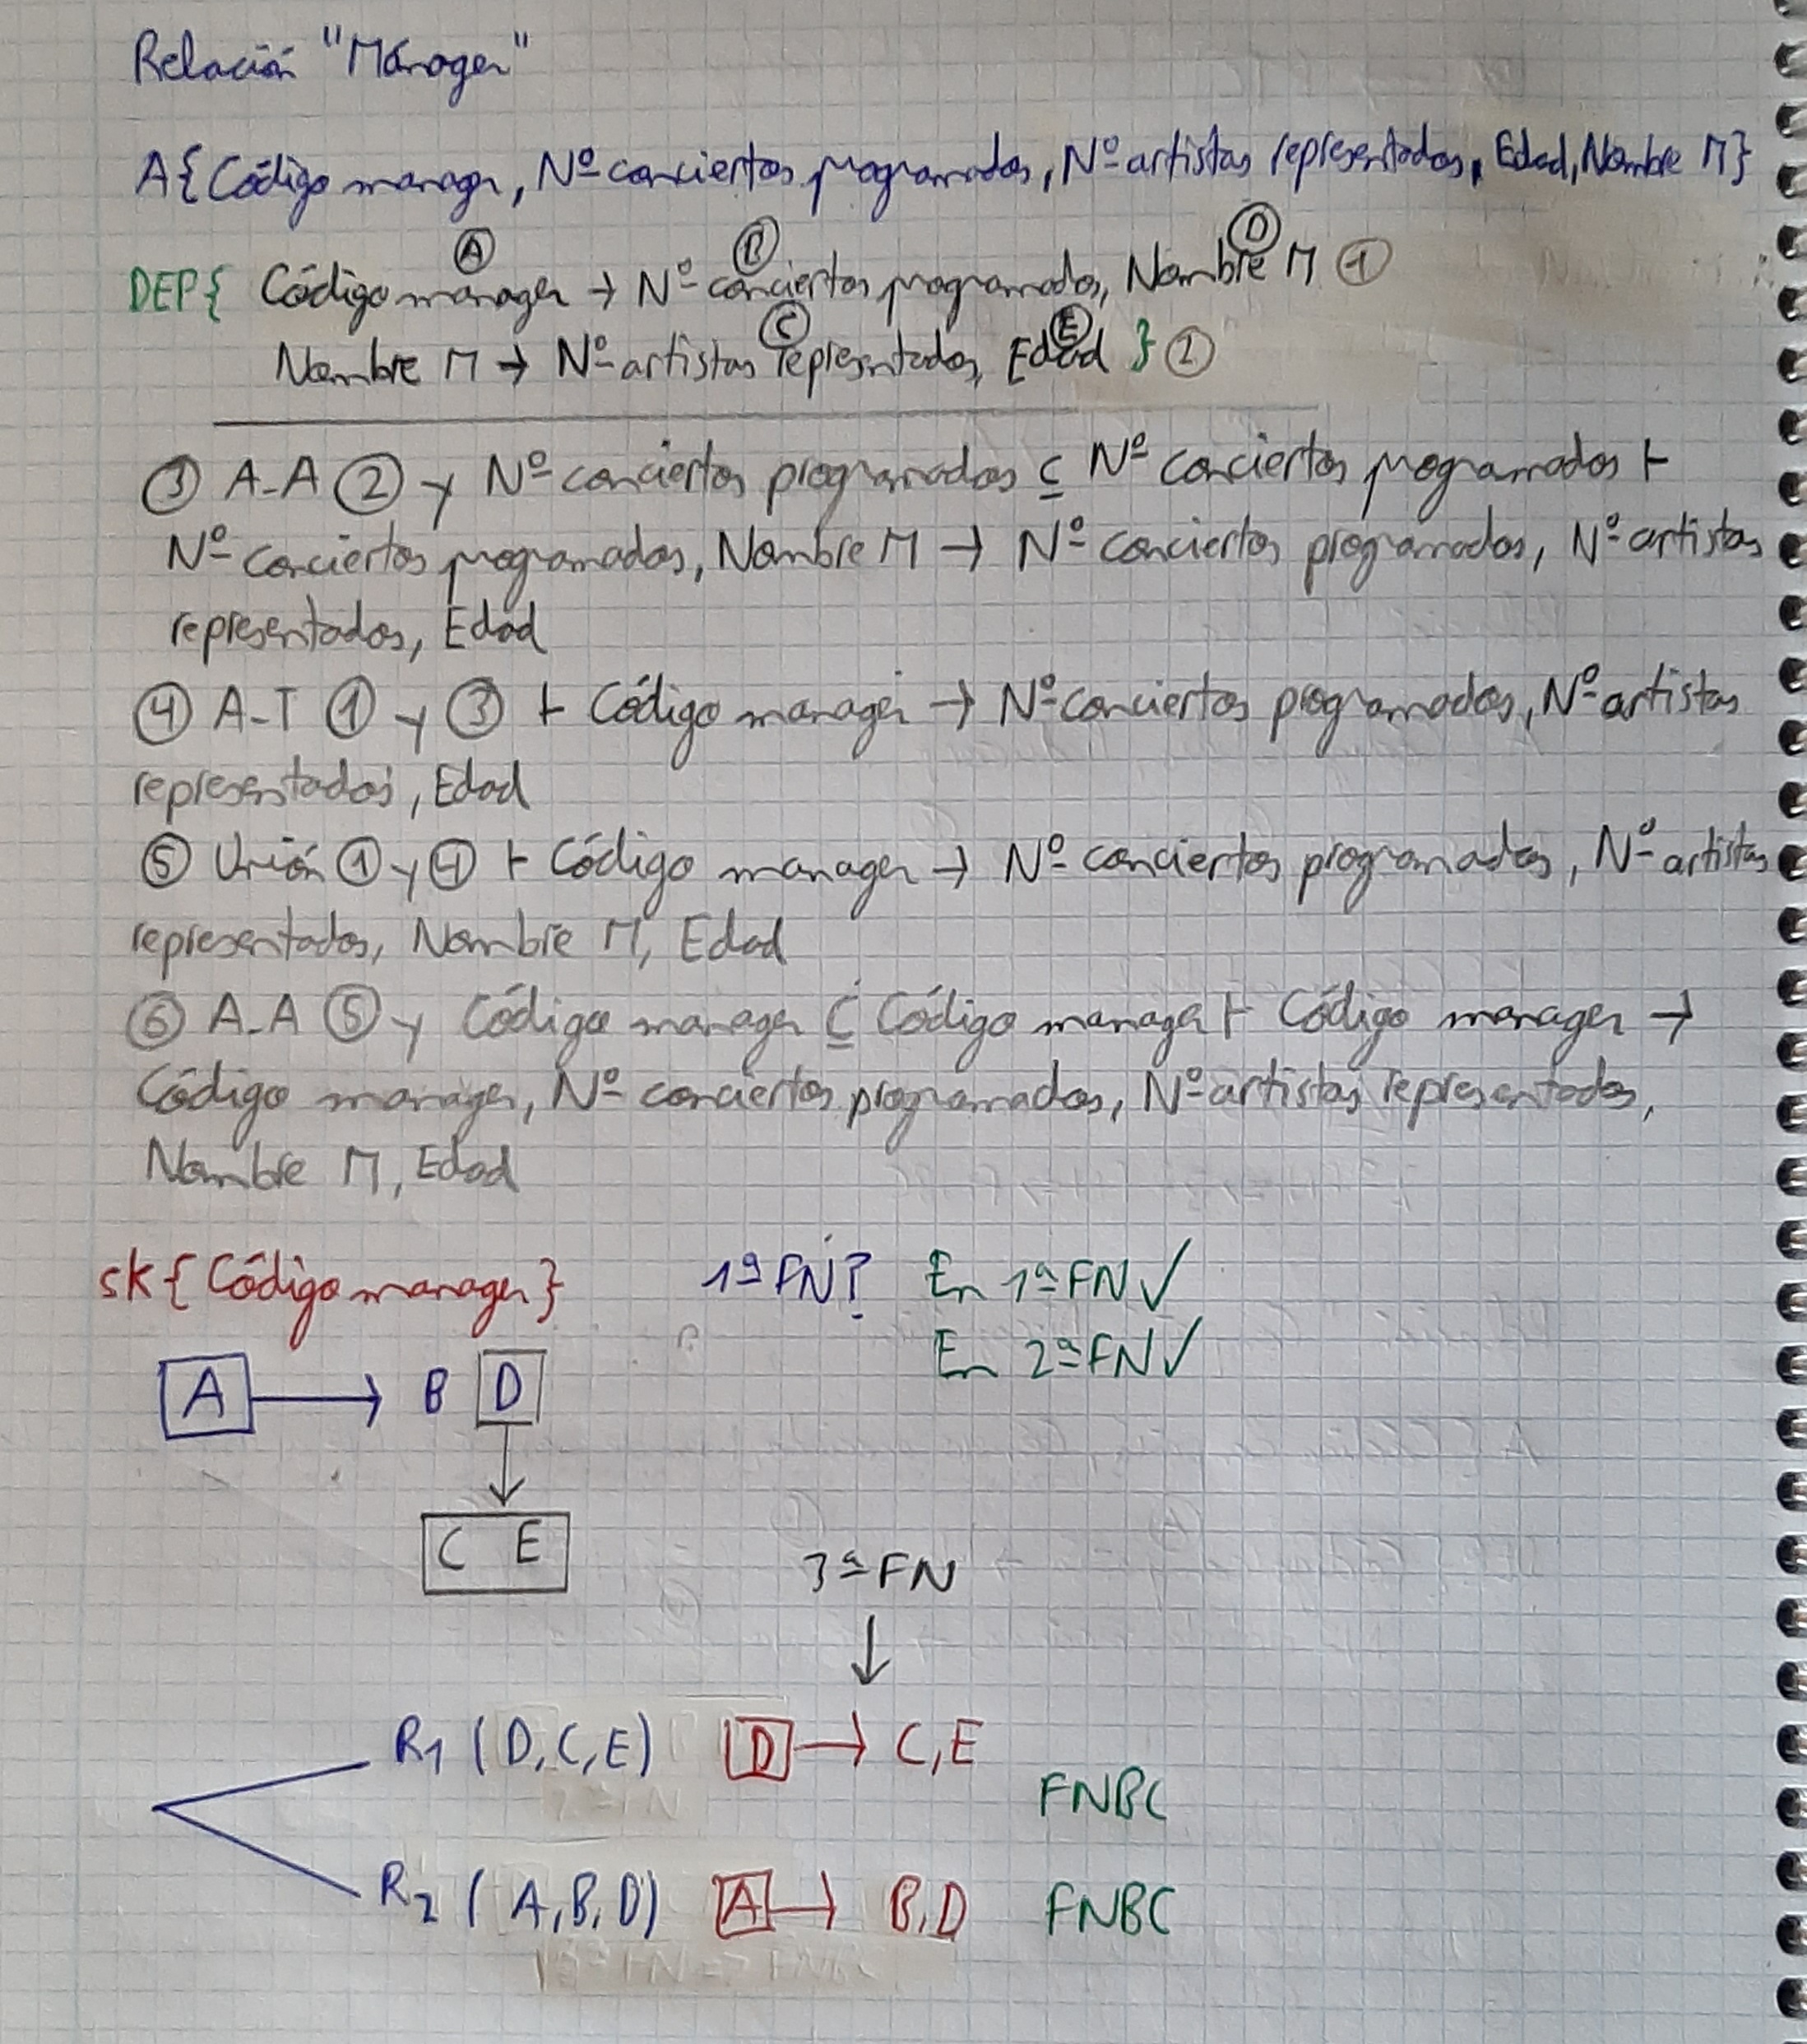 Relación "Mánager"
A{Código manager, Nº conciertos programados, Nº artistas representados, Edad, Nombre M}
A B D
DEP{ Código manager → Nº conciertos programados, Nombre M 1
C E
Nombre M → Nº artistas representados, Edad } 2
3 A-A 2 y Nº conciertos programados ⊆ Nº conciertos programados ⊢
Nº conciertos programados, Nombre M → Nº conciertos programados, Nº artistas
representados, Edad
4 A-T 1 y 3 ⊢ Código manager → Nº conciertos programados, Nº artistas
representados, Edad
5 Unión 1 y 4 ⊢ Código manager → Nº conciertos programados, Nº artistas
representados, Nombre M, Edad
6 A-A 5 y Código manager ⊆ Código manager ⊢ Código manager →
Código manager, Nº conciertos programados, Nº artistas representados,
Nombre M, Edad
SK{Código manager} 1ª FN? En 1ª FN ✓
En 2ª FN ✓
A → B D
↓
C E
3ª FN
↓
R1 (D,C,E) D → C,E
FNBC
R2 (A,B,D) A → B,D FNBC